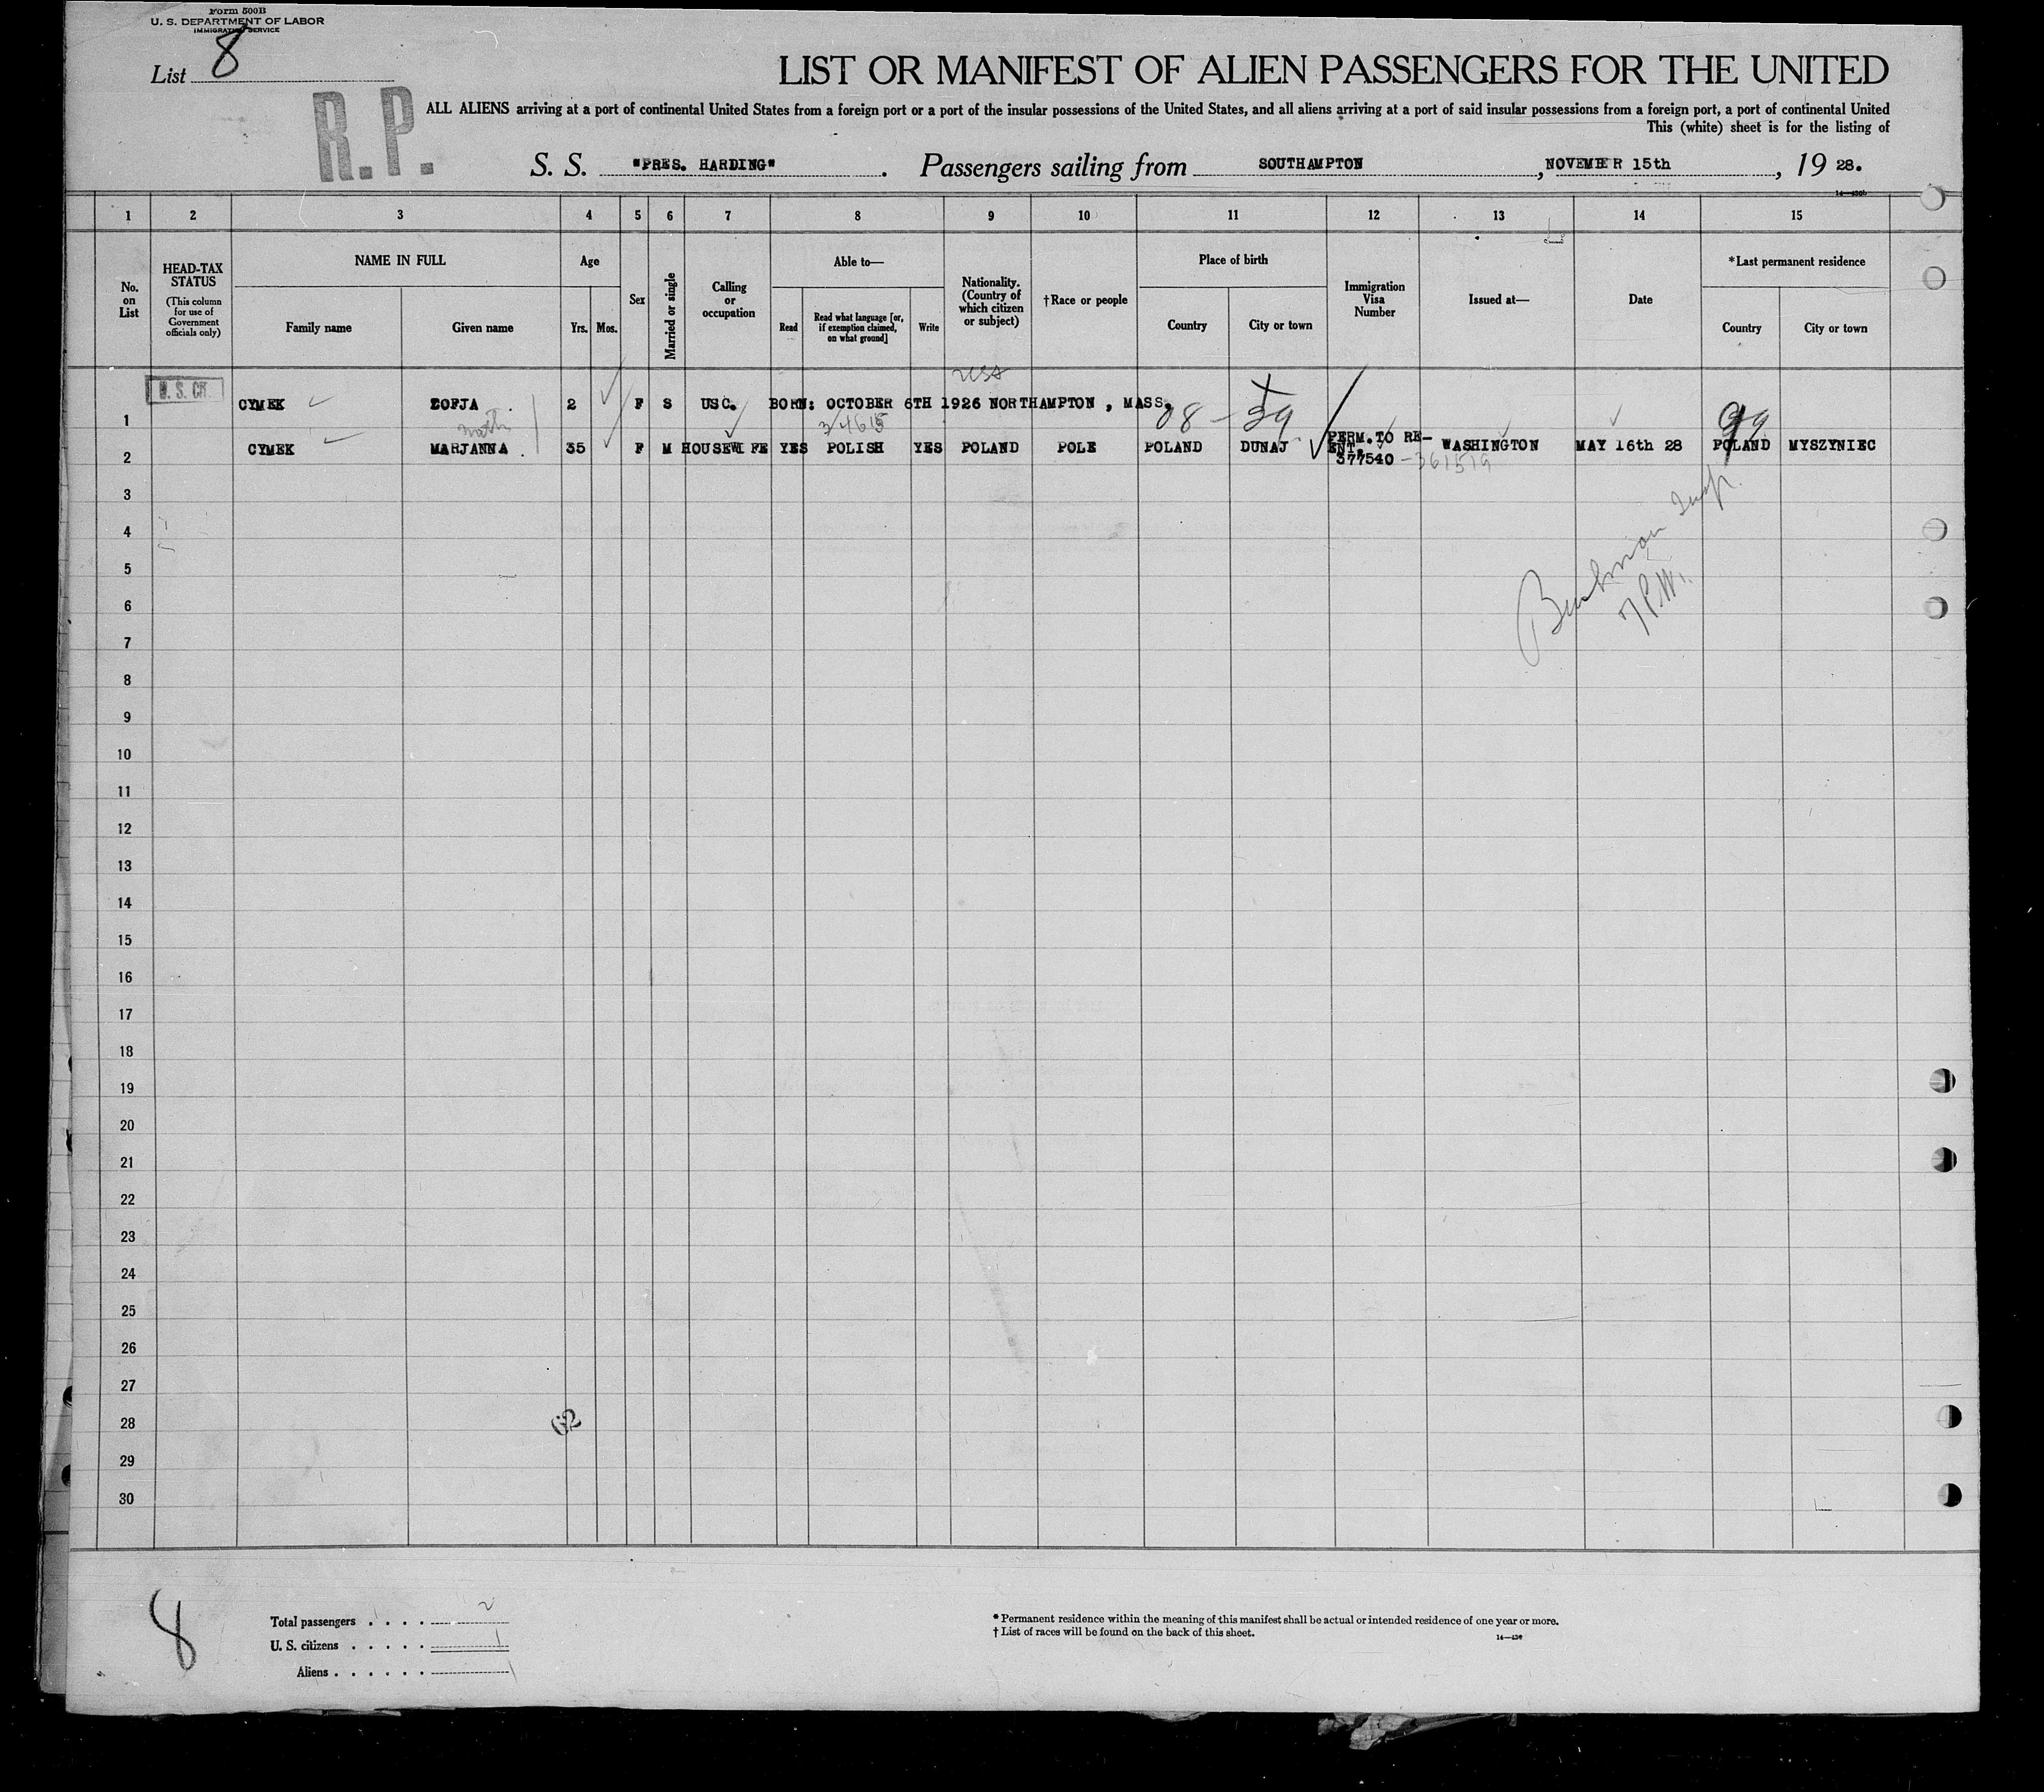 Form 500B
U. S. DEPARTMENT OF LABOR
IMMIGRATION SERVICE
List 8
R.P.
LIST OR MANIFEST OF ALIEN PASSENGERS FOR THE UNITED
ALL ALIENS arriving at a port of continental United States from a foreign port or a port of the insular possessions of the United States, and all aliens arriving at a port of said insular possessions from a foreign port, a port of continental United
This (white) sheet is for the listing of
S. S. "PRES. HARDING". Passengers sailing from SOUTHAMPTON, NOVEMBER 15th, 19 28.
1 2 3 4 5 6 7 8 9 10 11 12 13 14 15
No. on List
HEAD-TAX STATUS
(This column for use of Government officials only)
NAME IN FULL
Family name
Given name
Age
Yrs. Mos.
Sex
Married or single
Calling or occupation
Able to—
Read
Read what language [or, if exemption claimed, on what ground]
Write
Nationality. (Country of which citizen or subject)
†Race or people
Place of birth
Country
City or town
Immigration Visa Number
Issued at—
Date
*Last permanent residence
Country
City or town
U. S. CIT.
USA
1 CYMEK ZOFJA 2 F S USC. BORN: OCTOBER 6TH 1926 NORTHAMPTON , MASS.
08-39
39
2 CYMEK MARJANNA 35 F M HOUSEWIFE YES POLISH YES POLAND POLE POLAND DUNAJ PERM. TO RE-ENT. 377540 -361519 WASHINGTON MAY 16th 28 POLAND MYSZYNIEC
3
4
5
6
7
8
9
10
11
12
13
14
15
16
17
18
19
20
21
22
23
24
25
26
27
28
29
30
62
8
Total passengers . . . . 2
U. S. citizens . . . . . 1
Aliens . . . . . . 1
* Permanent residence within the meaning of this manifest shall be actual or intended residence of one year or more.
† List of races will be found on the back of this sheet.